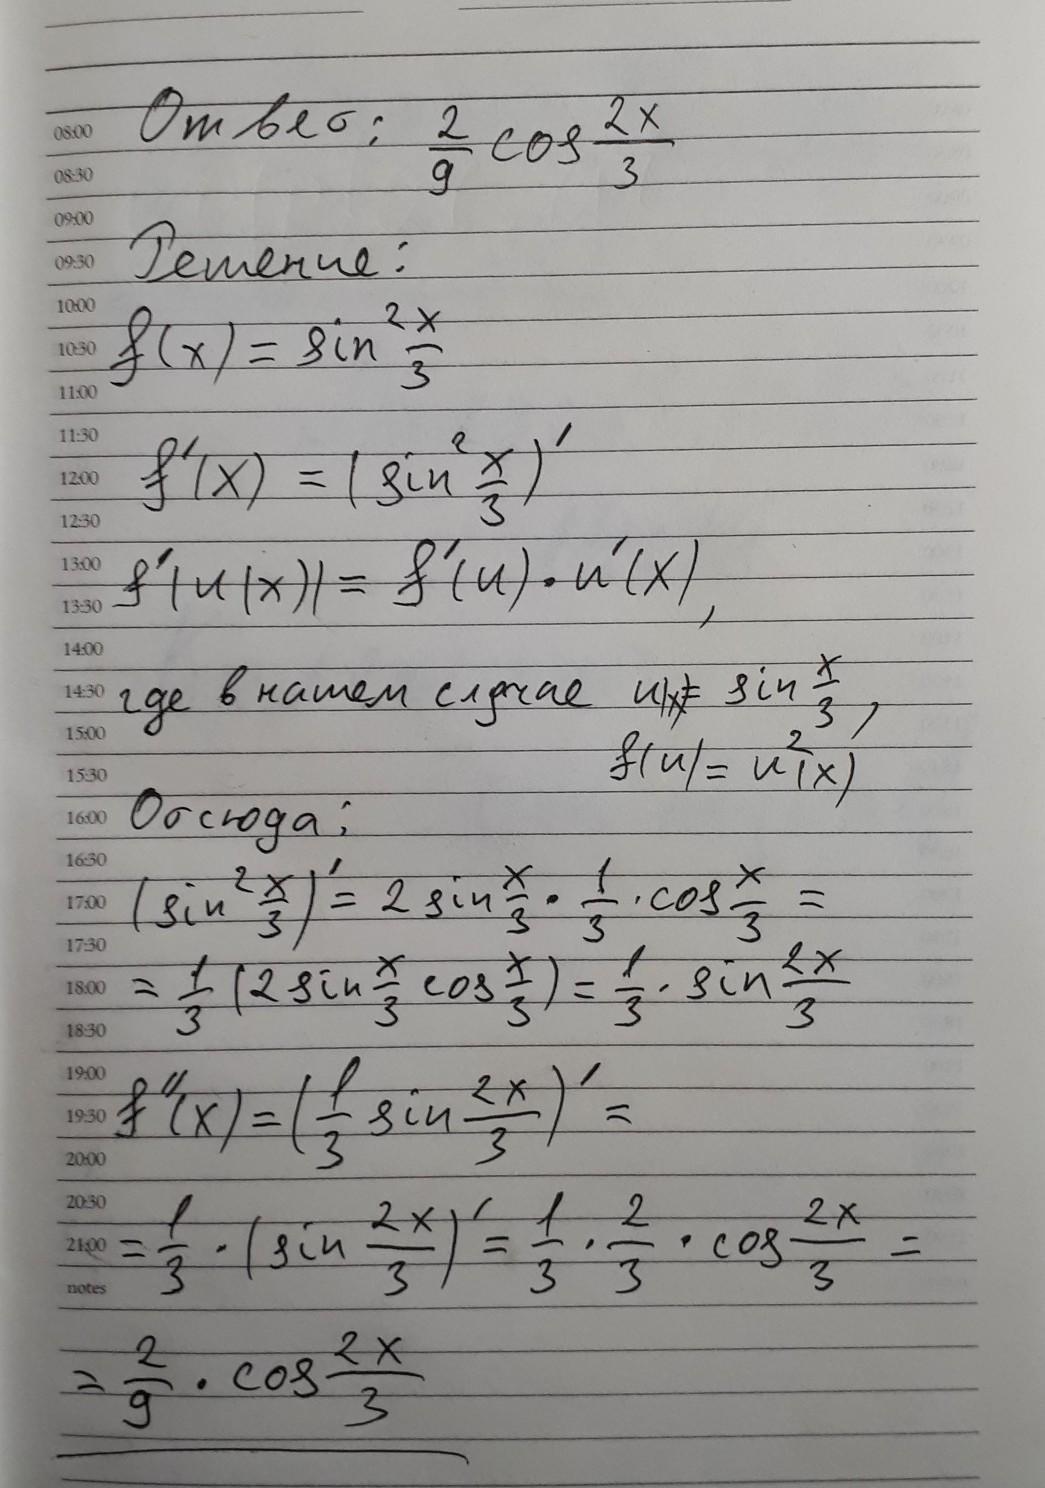 08:00 Ответ: 2/9 cos 2x/3
08:30
09:00
09:30 Решение:
10:00
10:30 f(x) = sin² x/3
11:00
11:30
12:00 f'(x) = (sin² x/3)'
12:30
13:00 f'(u(x)) = f'(u) · u'(x),
13:30
14:00
14:30 где в нашем случае u(x) = sin x/3,
15:00 f(u) = u²(x)
15:30
16:00 Отсюда:
16:30
17:00 (sin² x/3)' = 2 sin x/3 · 1/3 · cos x/3 =
17:30
18:00 = 1/3 (2 sin x/3 cos x/3) = 1/3 · sin 2x/3
18:30
19:00
19:30 f''(x) = (1/3 sin 2x/3)' =
20:00
20:30
21:00 = 1/3 · (sin 2x/3)' = 1/3 · 2/3 · cos 2x/3 =
notes
= 2/9 · cos 2x/3